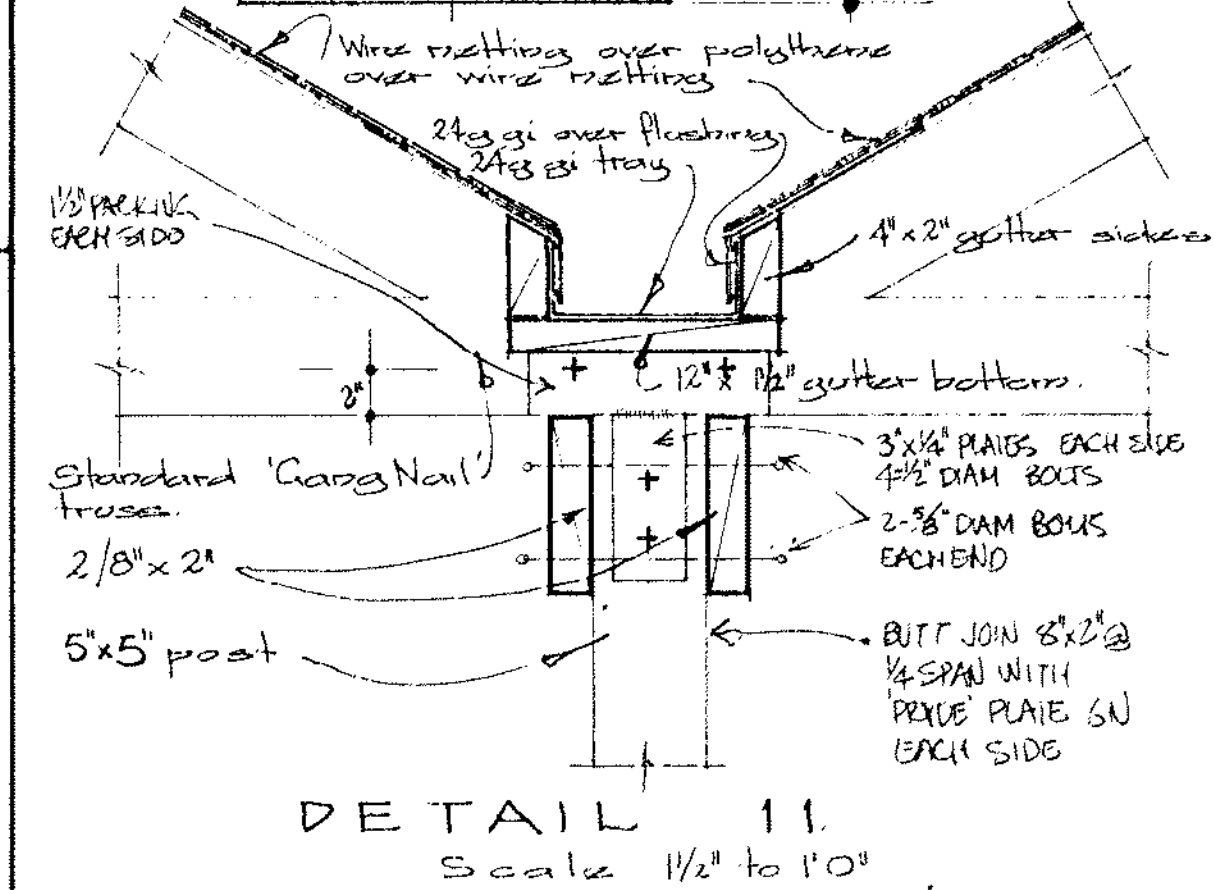 Wire netting over polythene
over wire netting
24g gi over flashing
24g gi tray
1½" PACKING
EACH SIDE
4" x 2" gutter sides
2"
12" x 1½" gutter bottom.
Standard 'Gang Nail'
truss.
3"x¼" PLATES EACH SIDE
4-½" DIAM BOLTS
2-⅝" DIAM BOLTS
EACH END
2/8" x 2"
5"x5" post
BUTT JOIN 8"x2" @
¼ SPAN WITH
'PRYDE' PLATE 6N
EACH SIDE
DETAIL 11.
Scale 1½" to 1'0"